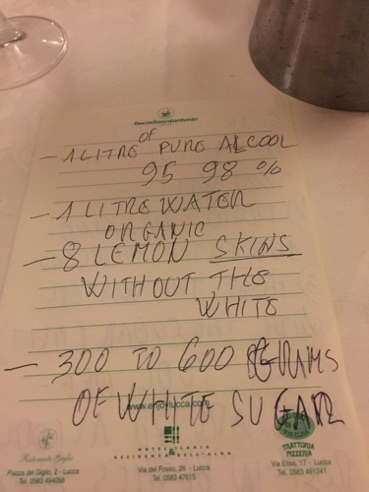 bucadisantantonio
- 1 LITRE OF PURE ALCOOL
95 98 %
- 1 LITRE WATER
ORGANIC
- 8 LEMON SKINS
WITHOUT THE
WHITE
- 300 TO 600 GRAMS
OF WHITE SUGAR
www.enjoylucca.com
Ristorante Giglio
Piazza del Giglio, 2 - Lucca
Tel. 0583 494058
HOTEL ILARIA
& RESIDENZA DELL'ALBA
Via del Fosso, 26 - Lucca
Tel. 0583 47615
TRATTORIA
PIZZERIA
Via Elisa, 17 - Lucca
Tel. 0583 491241